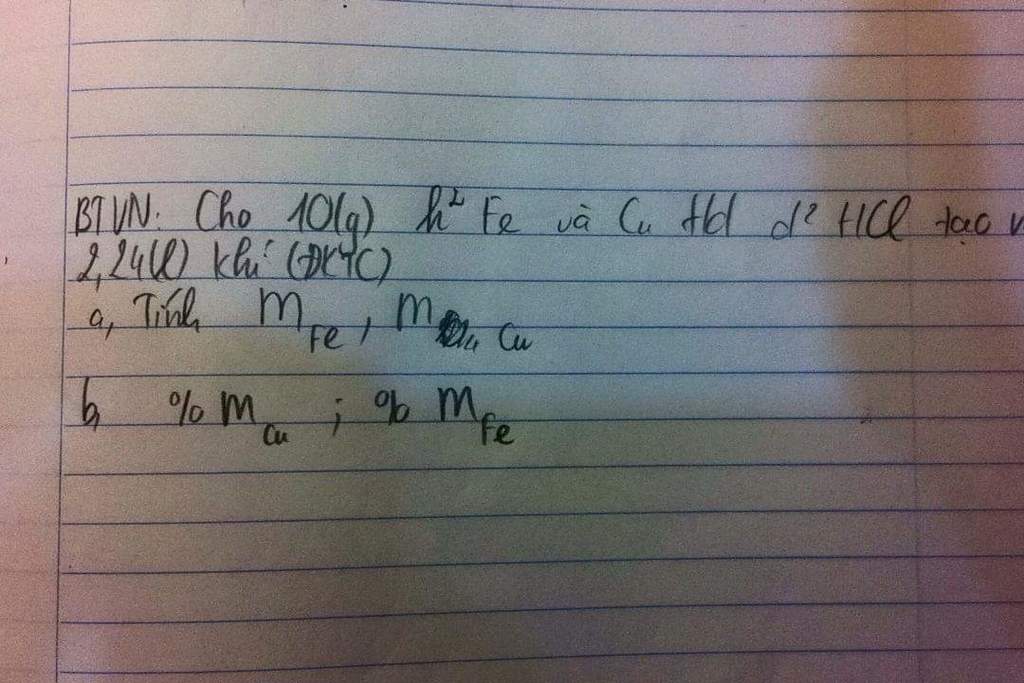 BTVN: Cho 10(g) h² Fe và Cu td d² HCl tạo
2,24(l) khí (ĐKTC)
a, Tính m Fe, m Cu
b, % m Cu ; % m Fe